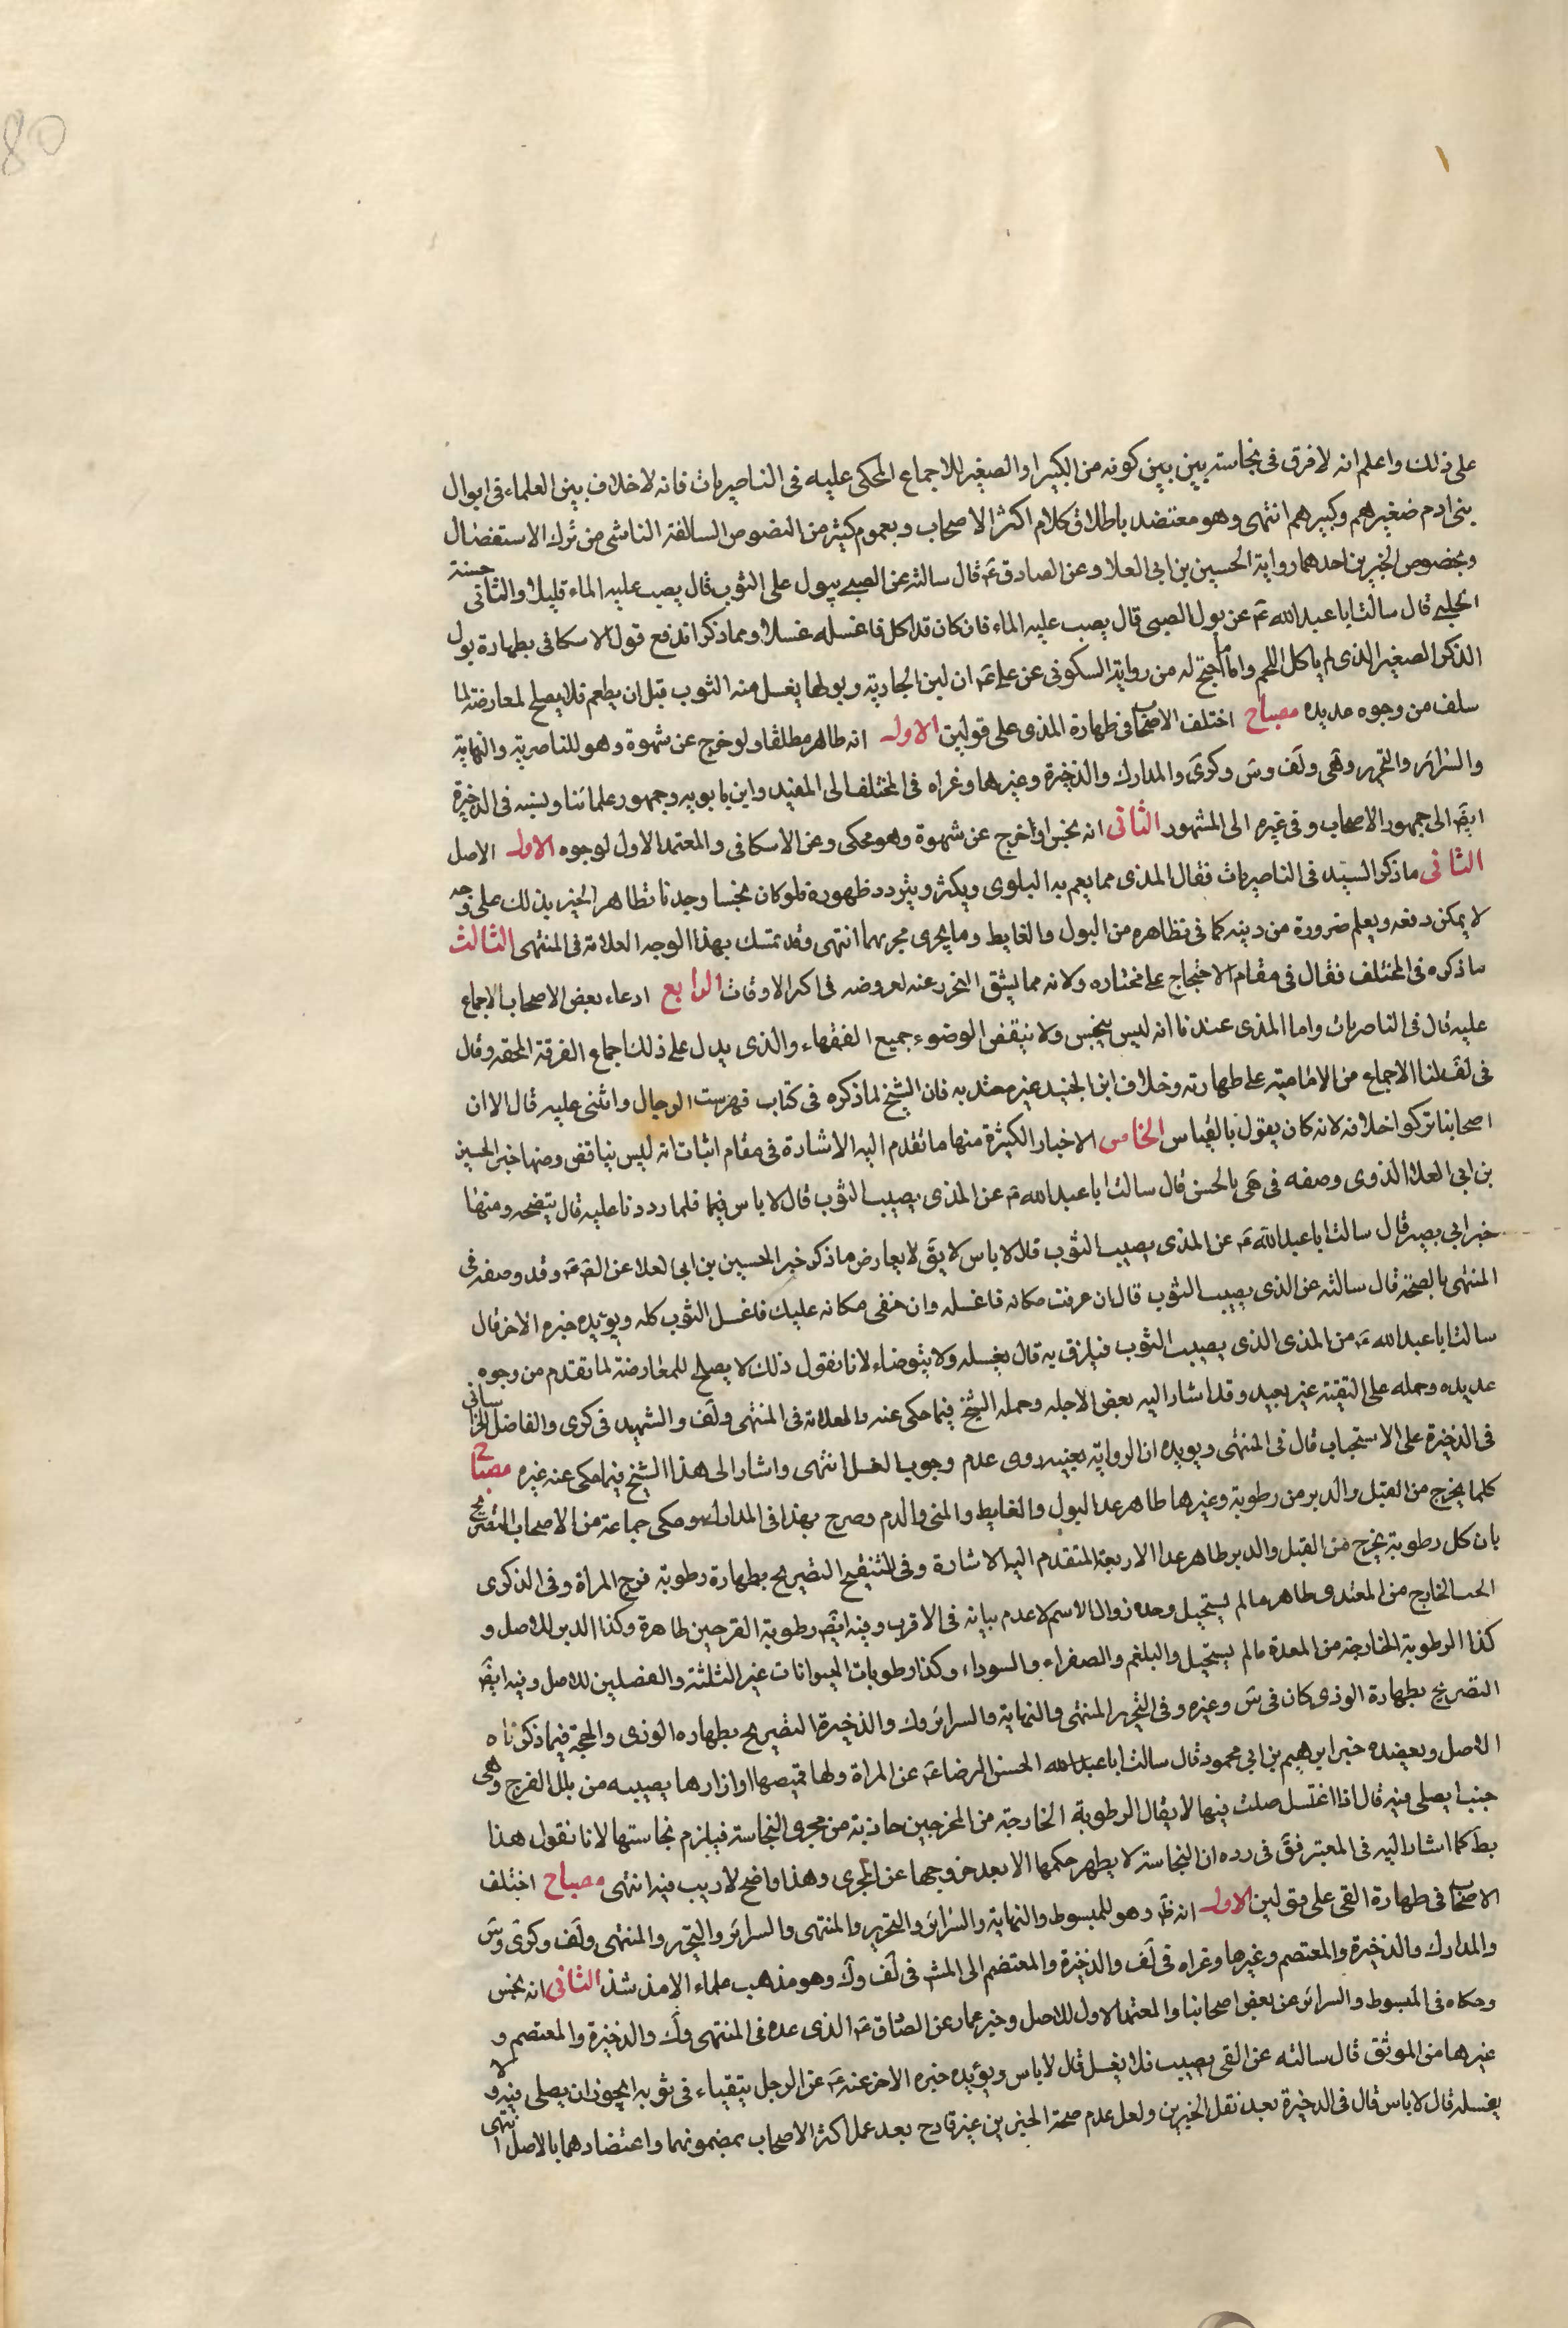 80
على ذلك واعلم انه لا فرق فى نجاسته بين بين كونه من الكبير او الصغير للاجماع المحكى عليه فى الناصريات فانه لا خلاف بين العلماء فى ابوال
بنى ادم صغيرهم وكبيرهم انتهى وهو معتضد باطلاق كلام اكثر الاصحاب وبعموم كثير من النصوص السالفة الناشى من ترك الاستفصال
وبخصوص الخبرين احدهما رواية الحسين بن ابى العلا وعن الصادق ع قال سالته عن الصبى يبول على الثوب قال يصب عليه الماء قليلا والثانى حسنة
الحلبى قال سالت ابا عبد الله ع عن بول الصبى قال يصب عليه الماء فان كان قد اكل فاغسله غسلا ومما ذكر اندفع قول الاسكافى بطهارة بول
الذكر الصغير الذى لم ياكل اللحم واما ما احتج له من رواية السكونى عن على ع ان لبن الجارية وبولها يغسل منه الثوب قبل ان يطعم فلا يصلح لمعارضة لما
سلف من وجوه عديده مصباح اختلف الاصحاب فى طهارة المذى على قولين الاول انه طاهر مطلقا ولو خرج عن شهوة وهو للناصرية والنهاية
والسرائر والتحرير وهى ولف وس وكرى والمدارك والذخيرة وغيرهما وعزاه فى المختلف الى المفيد وابن بابويه وجمهور علمائنا ونسبه فى الذخيرة
ايض الى جمهور الاصحاب وفى غيره الى المشهور الثانى انه نجس اذا خرج عن شهوة وهو محكى وعن الاسكافى والمعتمد الاول لوجوه الاول الاصل
الثانى ما ذكر السيد فى الناصريات فقال المذى مما يعم به البلوى ويكثر ويتردد ظهوره فلو كان نجسا وجدنا تظاهر الخبر بذلك على وجه
لا يمكن دفعه ويعلم ضرورة من دينه كما فى نظاهره من البول والغايط وما يجرى مجريهما انتهى وقد تمسك بهذا الوجه العلامة فى المنتهى الثالث
ما ذكره فى المختلف فقال فى مقام الاحتجاج على مختاره ولانه مما يشق التحرز عنه لعروضه فى اكثر الاوقات الرابع ادعاء بعض الاصحاب الاجماع
عليه قال فى الناصريات واما المذى عندنا انه ليس بنجس ولا ينقض الوضوء جميع الفقهاء والذى يدل على ذلك اجماع الفرقة المحقه وقال
فى لف لنا الاجماع من الامامية على طهارته وخلاف ابن الجنيد غير معتد به فان الشيخ لما ذكره فى كتاب فهرست الرجال واثنى عليه قال الا ان
اصحابنا تركوا خلافه لانه كان يقول بالقياس الخامس الاخبار الكثيرة منها ما تقدم اليه الاشارة فى مقام اثبات انه ليس بناقض ومنها خبر الحسين
بن ابى العلا الذى وصفه فى هى بالحسن قال سالت ابا عبد الله ع عن المذى يصيب الثوب قال لا باس فيما فلما رددنا عليه قال ينضحه ومنها
خبر ابى بصير قال سالت ابا عبد الله ع عن المذى يصيب الثوب قال لا باس لا يق لا يعارض ما ذكر خبر الحسين بن ابى العلا عن الص ع وقد وصفه فى
المنتهى بالصحة قال سالته عن الذى يصيب الثوب قال ان عرفت مكانه فاغسله وان خفى مكانه عليك فاغسل الثوب كله ويؤيده خبره الاخر قال
سالت ابا عبد الله ع من المذى الذى يصيب الثوب فيلزق به قال يغسله ولا يتوضاء لانا نقول ذلك لا يصلح للمعارضة لما تقدم من وجوه
عديده وحمله على التقية غير بعيد وقد اشار اليه بعض الاجله وحمله الشيخ فيما حكى عنه والعلامة فى المنتهى ولف والشهيد فى كرى والفاضل الخراسانى
فى الذخيرة على الاستحباب قال فى المنتهى ويؤيده ان الرواية بعينه روى عدم وجوب الغسل انتهى واشار الى هذا الشيخ فيما حكى عنه غيره مصباح
كلما يخرج من القبل والدبر من رطوبة وغيرها طاهر عدا البول والغايط والمنى والدم وصرح بهذا فى المدارك وحكى جماعة من الاصحاب التصريح
بان كل رطوبة يخرج من القبل والدبر طاهر عدا الاربعة المتقدم اليه الاشارة وفى التنقيح التصريح بطهارة رطوبة فرج المراة وفى الذكرى
الحب الخارج من المعتدى طاهر ما لم يستحيل وحده زوال الاسم لا عدم بيانه فى الاقرب وفيه ايض رطوبة الفرجين طاهرة وكذا الدبر للاصل و
كذا الرطوبة الخارجة من المعدة ما لم يستحيل والبلغم والصفراء والسوداء وكذا رطوبات الحيوانات غير الثلثة والفضلين للاصل وفيه ايض
التصريح بطهارة الوذى كان فى س وغيره وفى التحرير المنتهى والنهاية والسرائر وك والذخيرة التصريح بطهاره الوذى والحجة فيما ذكرناه
الاصل ويعضده خبر ابرهيم بن ابى محمود قال سالت ابا عبد الله الحسن الرضا ع عن المراة ولها قميصها او ازارها يصيبه من بلل الفرج وهى
جنب ايصلى فيه قال اذا اغتسل صلت فيها لا يقال الرطوبة الخارجة من المخرجين حاذية من مجرى النجاسة فيلزم نجاستها لانا نقول هذا
بط كما اشار اليه فى المعتبر فق فى رده ان النجاسة لا يظهر حكمها الا بعد خروجها عن المجرى وهذا واضح لا ريب فيه انتهى مصباح اختلف
الاصحاب فى طهارة القى على قولين الاول انه ظ وهو للمبسوط والنهاية والسرائر والتحرير والمنتهى والسرائر والتحرير والمنتهى ولف وكرى وس
والمدارك والذخيرة والمعتصم وغيرها وعزاه فى لف والذخيرة والمعتصم الى المش فى لف وك وهو مذهب علماء الا من شذ الثانى انه نجس
وحكاه فى المبسوط والسرائر عن بعض اصحابنا والمعتمد الاول للاصل وخبر عمار عن الصادق ع الذى عده فى المنتهى وك والذخيرة والمعتصم و
غيرها من الموثق قال سالته عن القى يصيب فلا يغسل قال لا باس ويؤيده خبره الاخر عنه ع عن الرجل يتقياء فى ثوبه ايجوز ان يصلى فيه ولا
يغسله قال لا باس قال فى الذخيرة بعد نقل الخبرين ولعل عدم صحة الخبرين غير قادح بعد عمل اكثر الاصحاب بمضمونهما واعتضادهما بالاصل انتهى